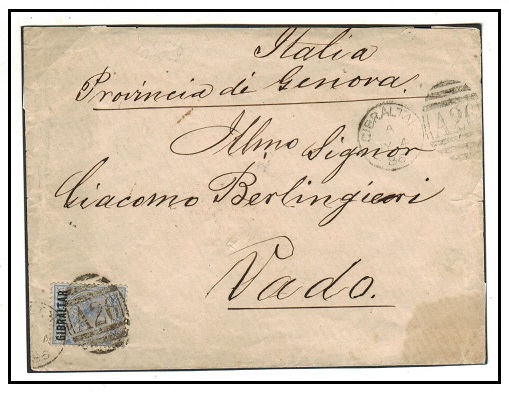 Italia
Provincia di Genova.
GIBRALTAR
A
86
A26
Illmo Signor
Giacomo Berlingieri
Vado.
GIBRALTAR
A26